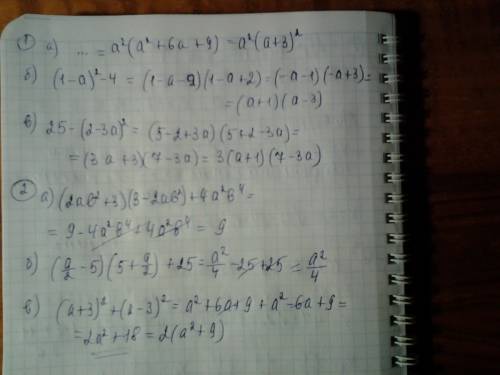 ① а) ... = a²(a²+6a+9) = a²(a+3)²
б) (1-a)²-4 = (1-a-2)(1-a+2) = (-a-1)(-a+3) =
= (a+1)(a-3)
в) 25-(2-3a)² = (5-2+3a)(5+2-3a) =
= (3a+3)(7-3a) = 3(a+1)(7-3a)
② а) (2ab²+3)(3-2ab²)+4a²b⁴ =
= 9-4a²b⁴+4a²b⁴ = 9
б) (a/2 -5)(5+ a/2)+25 = a²/4 -25+25 = a²/4
в) (a+3)²+(a-3)² = a²+6a+9+a²-6a+9 =
= 2a²+18 = 2(a²+9)